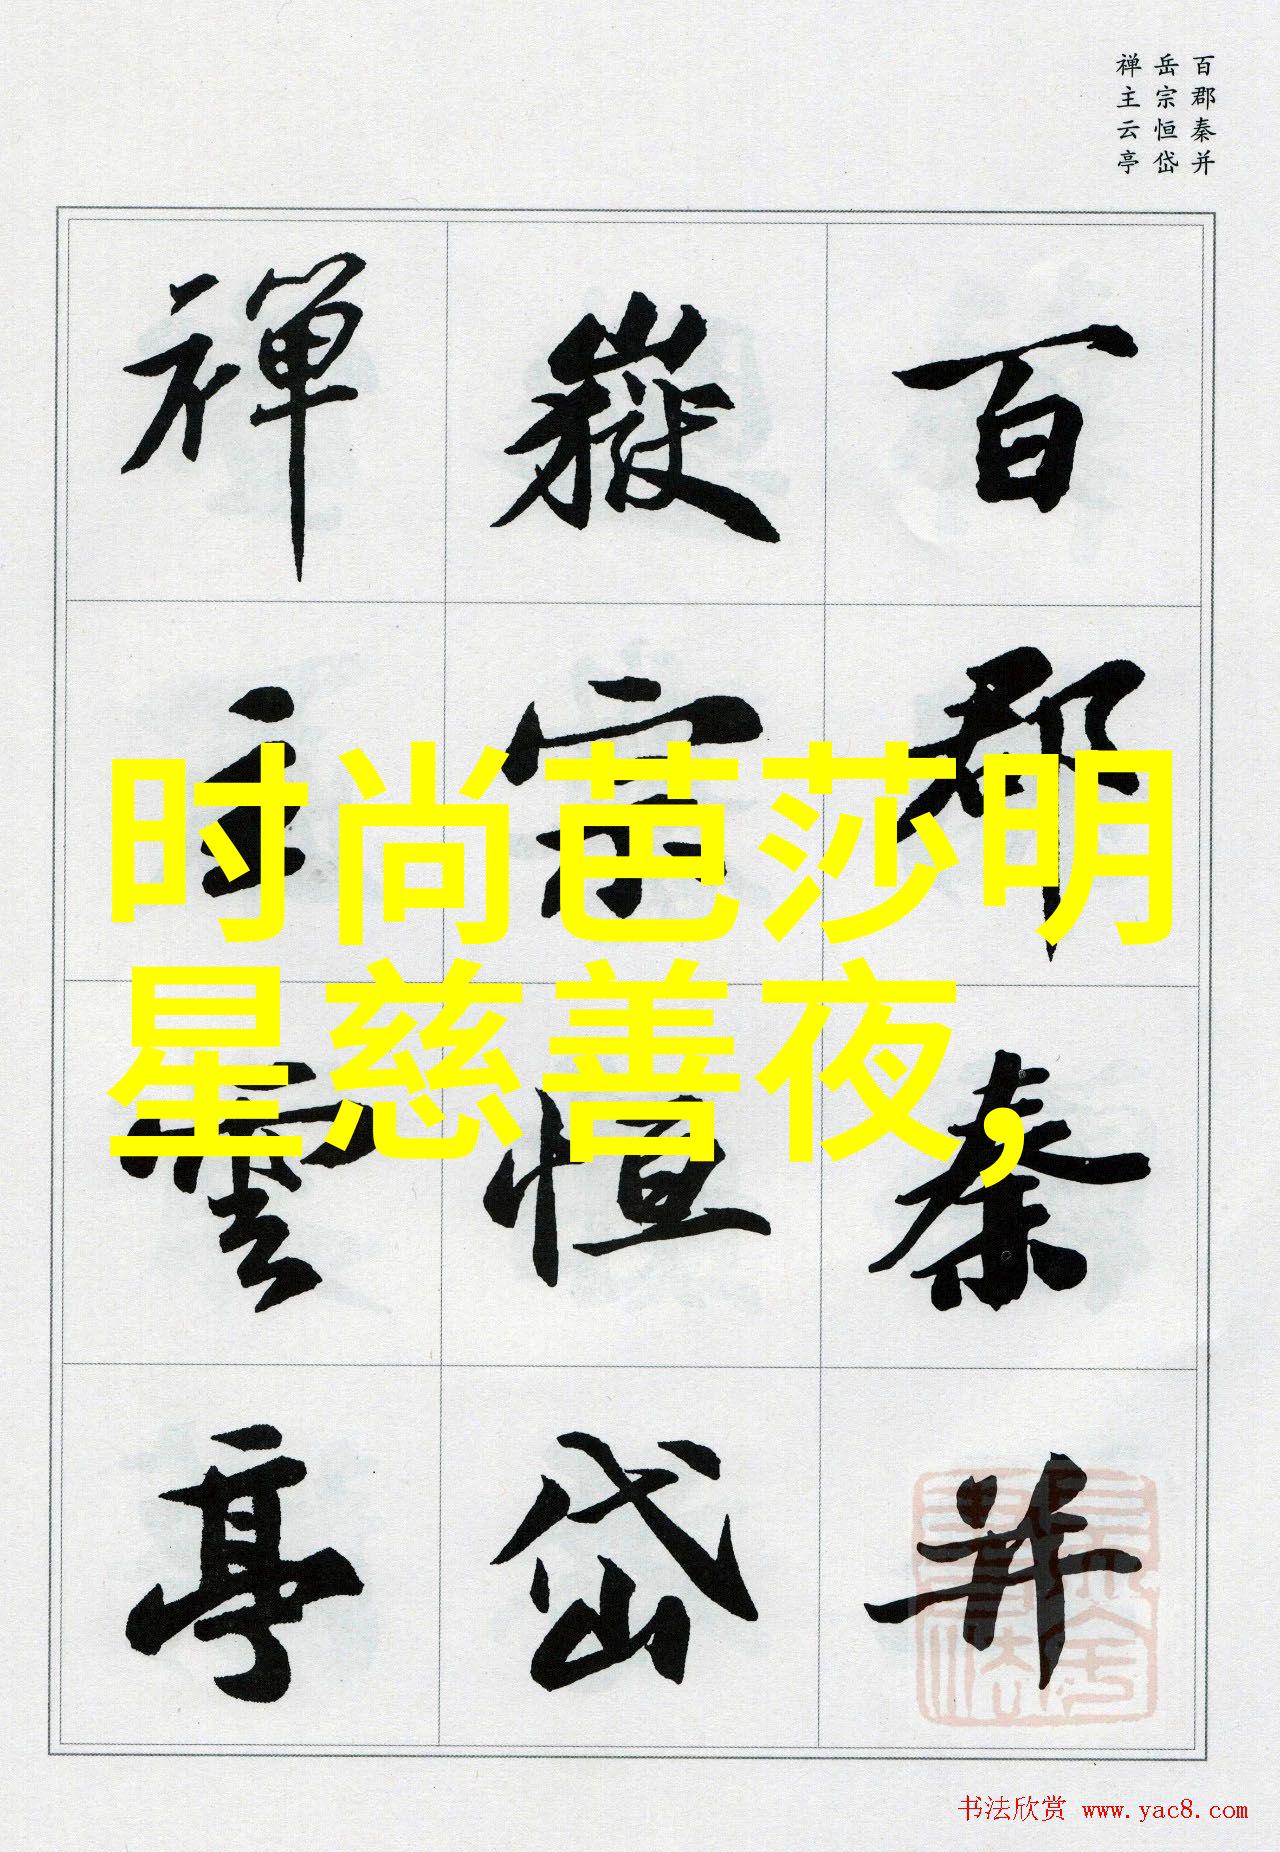 百郡秦并
岳宗恒岱
禅主云亭
百郡秦并
嶽宗恒岱
禅主雲亭
时尚芭莎明
星慈善夜,
书法欣赏 www.yac8.com